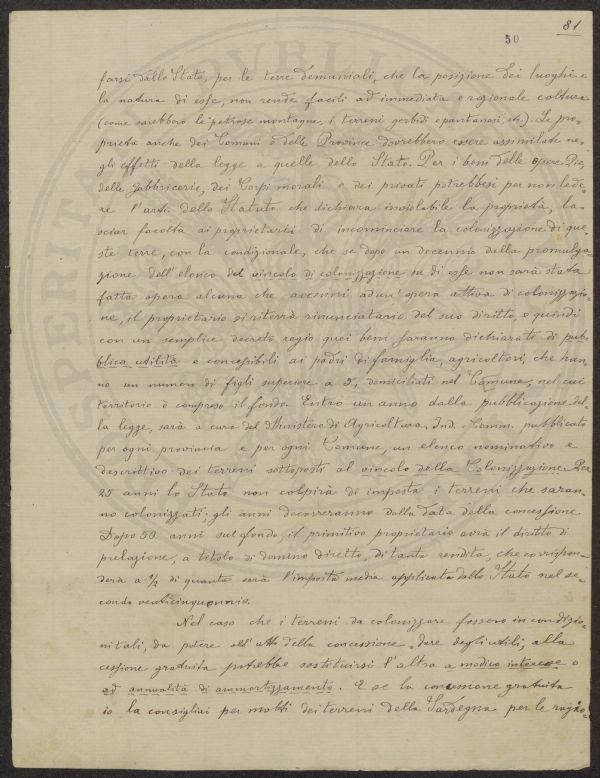 81
50
farsi dallo Stato, per le terre demaniali, che la posizione dei luoghi e
la natura di esse, non rende facili ad immediata e razionale coltura
(come sarebbero le petrose montagne, i terreni gerbidi e pantanosi, etc.). Le pro-
prietà anche dei Comuni e delle Province dovrebbero essere assimilate ne-
gli effetti della legge a quelle dello Stato. Per i beni delle Opere Pie,
delle Fabbricerie, dei Corpi morali e dei privati potrebbesi per non lede-
re l'art. dello Statuto che dichiara inviolabile la proprietà, la-
sciar facoltà ai proprietarii di incominciare la colonizzazione di que-
ste terre, con la condizionale, che se dopo un decennio dalla promulga-
zione dell'elenco del vincolo di colonizzazione su di esse non sarà stata
fatta opera alcuna che accenni ad un'opera attiva di colonizzazio-
ne, il proprietario si riterrà rinunciatario del suo diritto, e quindi
con un semplice decreto regio quei beni saranno dichiarati di pub-
blica utilità e concessibili ai padri di famiglia, agricoltori, che han-
no un numero di figli superiore a 5, domiciliati nel Comune, nel cui
territorio è compreso il fondo. Entro un anno dalla pubblicazione del-
la legge, sarà a cura del Ministero di Agricoltura, Ind. Comm. pubblicato
per ogni provincia e per ogni Comune, un elenco nominativo e
descrittivo dei terreni sottoposti al vincolo della Colonizzazione. Per
25 anni lo Stato non colpirà di imposta i terreni che saran-
no colonizzati; gli anni decorreranno dalla data della concessione
Dopo 50 anni sul fondo, il primitivo proprietario avrà il diritto di
prelazione, a titolo di dominio diretto, di tanta rendita, che corrispon-
derà a 1/2 di quanto sarà l'imposta media applicata dallo Stato nel se-
condo venticinquennio.
Nel caso che i terreni da colonizzare fossero in condizio-
ni tali, da potere all'atto della concessione dare degli utili, alla
cessione gratuita potrebbe sostituirsi l'altra a modico interesse o
ad annualità di ammortizzamento. E se la concessione gratuita
io la consigliai per molti dei terreni della Sardegna per le ragio-